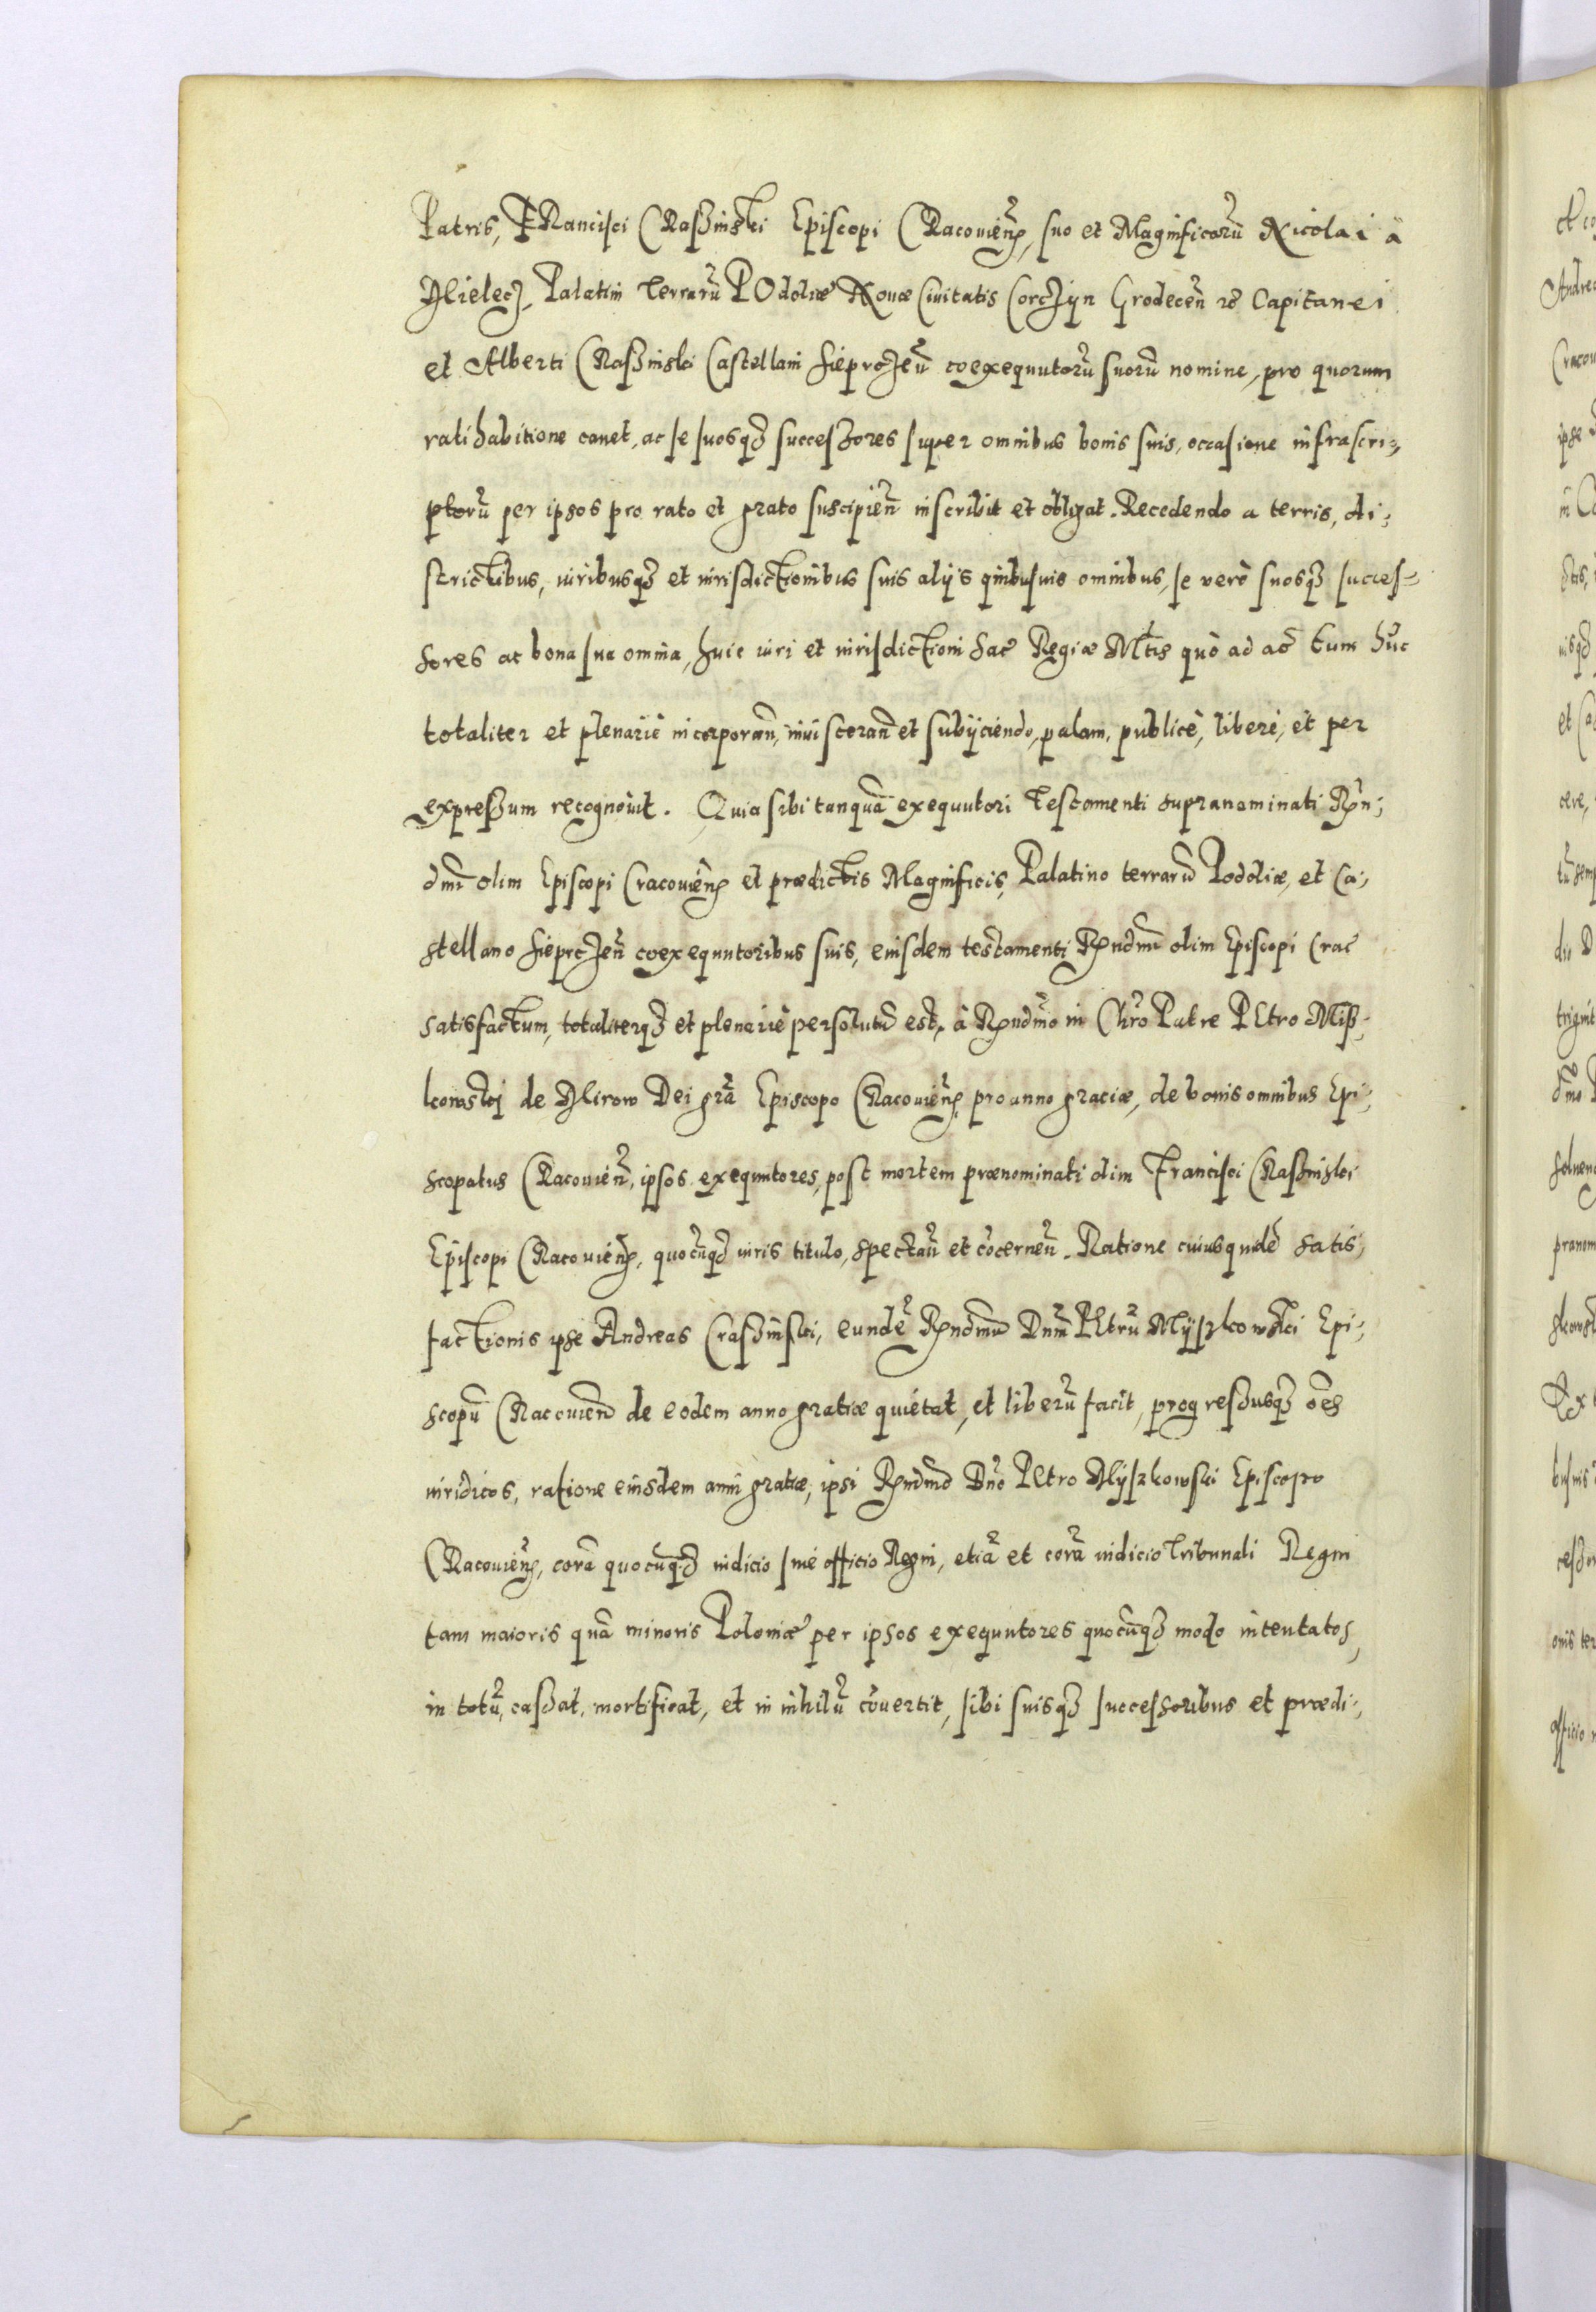 Patris, FRancisci CRaßinski Episcopi CRacovień, suo et Magnificorũ Nicolai à
Mielecz, Palatini terrarũ POdoliæ Novæ Civitatis Corczyn Grodeceń &c Capitanei
et Alberti CRaßinski Castellani Sieprczeñ coexequutorũ suorũ nomine, pro quorum
ratihabitione cavet, ac se suosq3 successores super omnibus bonis suis, occasione infrascri,,
ptorũ per ipsos pro rato et grato suscipień inscribit et obligat. Recedendo a terris, di,,
strictibus, iuribusq3 et iurisdictionibus suis alijs quibusvis omnibus, se verò suosq3 succes-
sores ac bona sua omnia, huic iuri et iurisdictioni Sacͤ Regiæ Mͭtis quò ad acͭ tum hũc
totaliter et plenariè incorporañ, invisceran̄ et subijciendo, palam, publicè, liberè, et per
expressum recognovit. Quia sibi tanquã exequutori testamenti supranominati Rñ,,
dmi olim Episcopi Cracovień et prædictis Magnificis, Palatino terrarũ Podoliæ, et Ca,,
stellano Sieprczeñ coexequutoribus suis, eiusdem testamenti Rñdmi olim Episcopi Crac̃
satisfactum, totaliterq3 et plenariè persolutũ est, à Rñdmo in Chro Patre PEtro Miß-
kowskj de Mirow Dei grã Episcopo CRacovień, pro anno graciæ, de bonis omnibus Epi,,
scopatus CRacovień, ipsos exequutores, post mortem prænominati olim Francisci CRaßinskei
Episcopi CRacovień, quocũq3 iuris titulo, spectañ et cõcerneñ. Ratione cuiusquidẽ satis,,
factionis ipse Andreas Craßinski, eundẽ Rñdmũ Dnm̃ PEtrũ Myszkowski Epi,,
scopũ CRacovień de eodem anno gratiæ quietat, et liberũ facit, progressusq3 oẽs
iuridicos, ratione eiusdem anni gratiæ, ipsi Rñdmo Dño PEtro Myszkowski Episcopo
CRacovień, corã quocũq3 iudicio sive officio Regni, etiã et corã iudicio tribunali Regni
tam maioris quã minoris Poloniæ per ipsos exequutores quocũq3 modo intentatos,
in totũ, cassat, mortificat, et in nihilũ cõvertit, sibi suisq3 successoribus et prædi,,